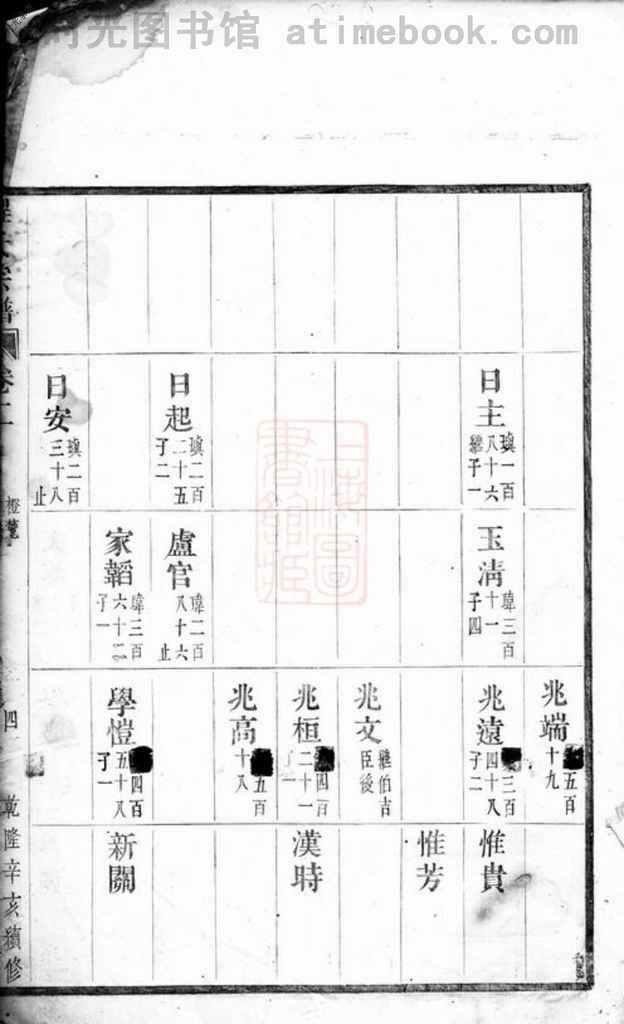 时光图书馆 atimebook.com
日主
璵一百
八十六
繼子一
日起
璵二百
二十五
子二
日安
璵二百
三十八
止
玉清
瑋三百
十一
子四
盧官
瑋二百
八十六
止
家韜
瑋三百
六十二
子一
兆端
五百
十九
兆遠
三百
四十八
子二
兆文
繼伯吉
臣後
兆桓
四百
二十一
兆高
五百
十八
學愷
四百
五十八
子一
惟貴
惟芳
漢時
新關
宗譜
卷二
四
乾隆辛亥續修
上海圖
書館藏